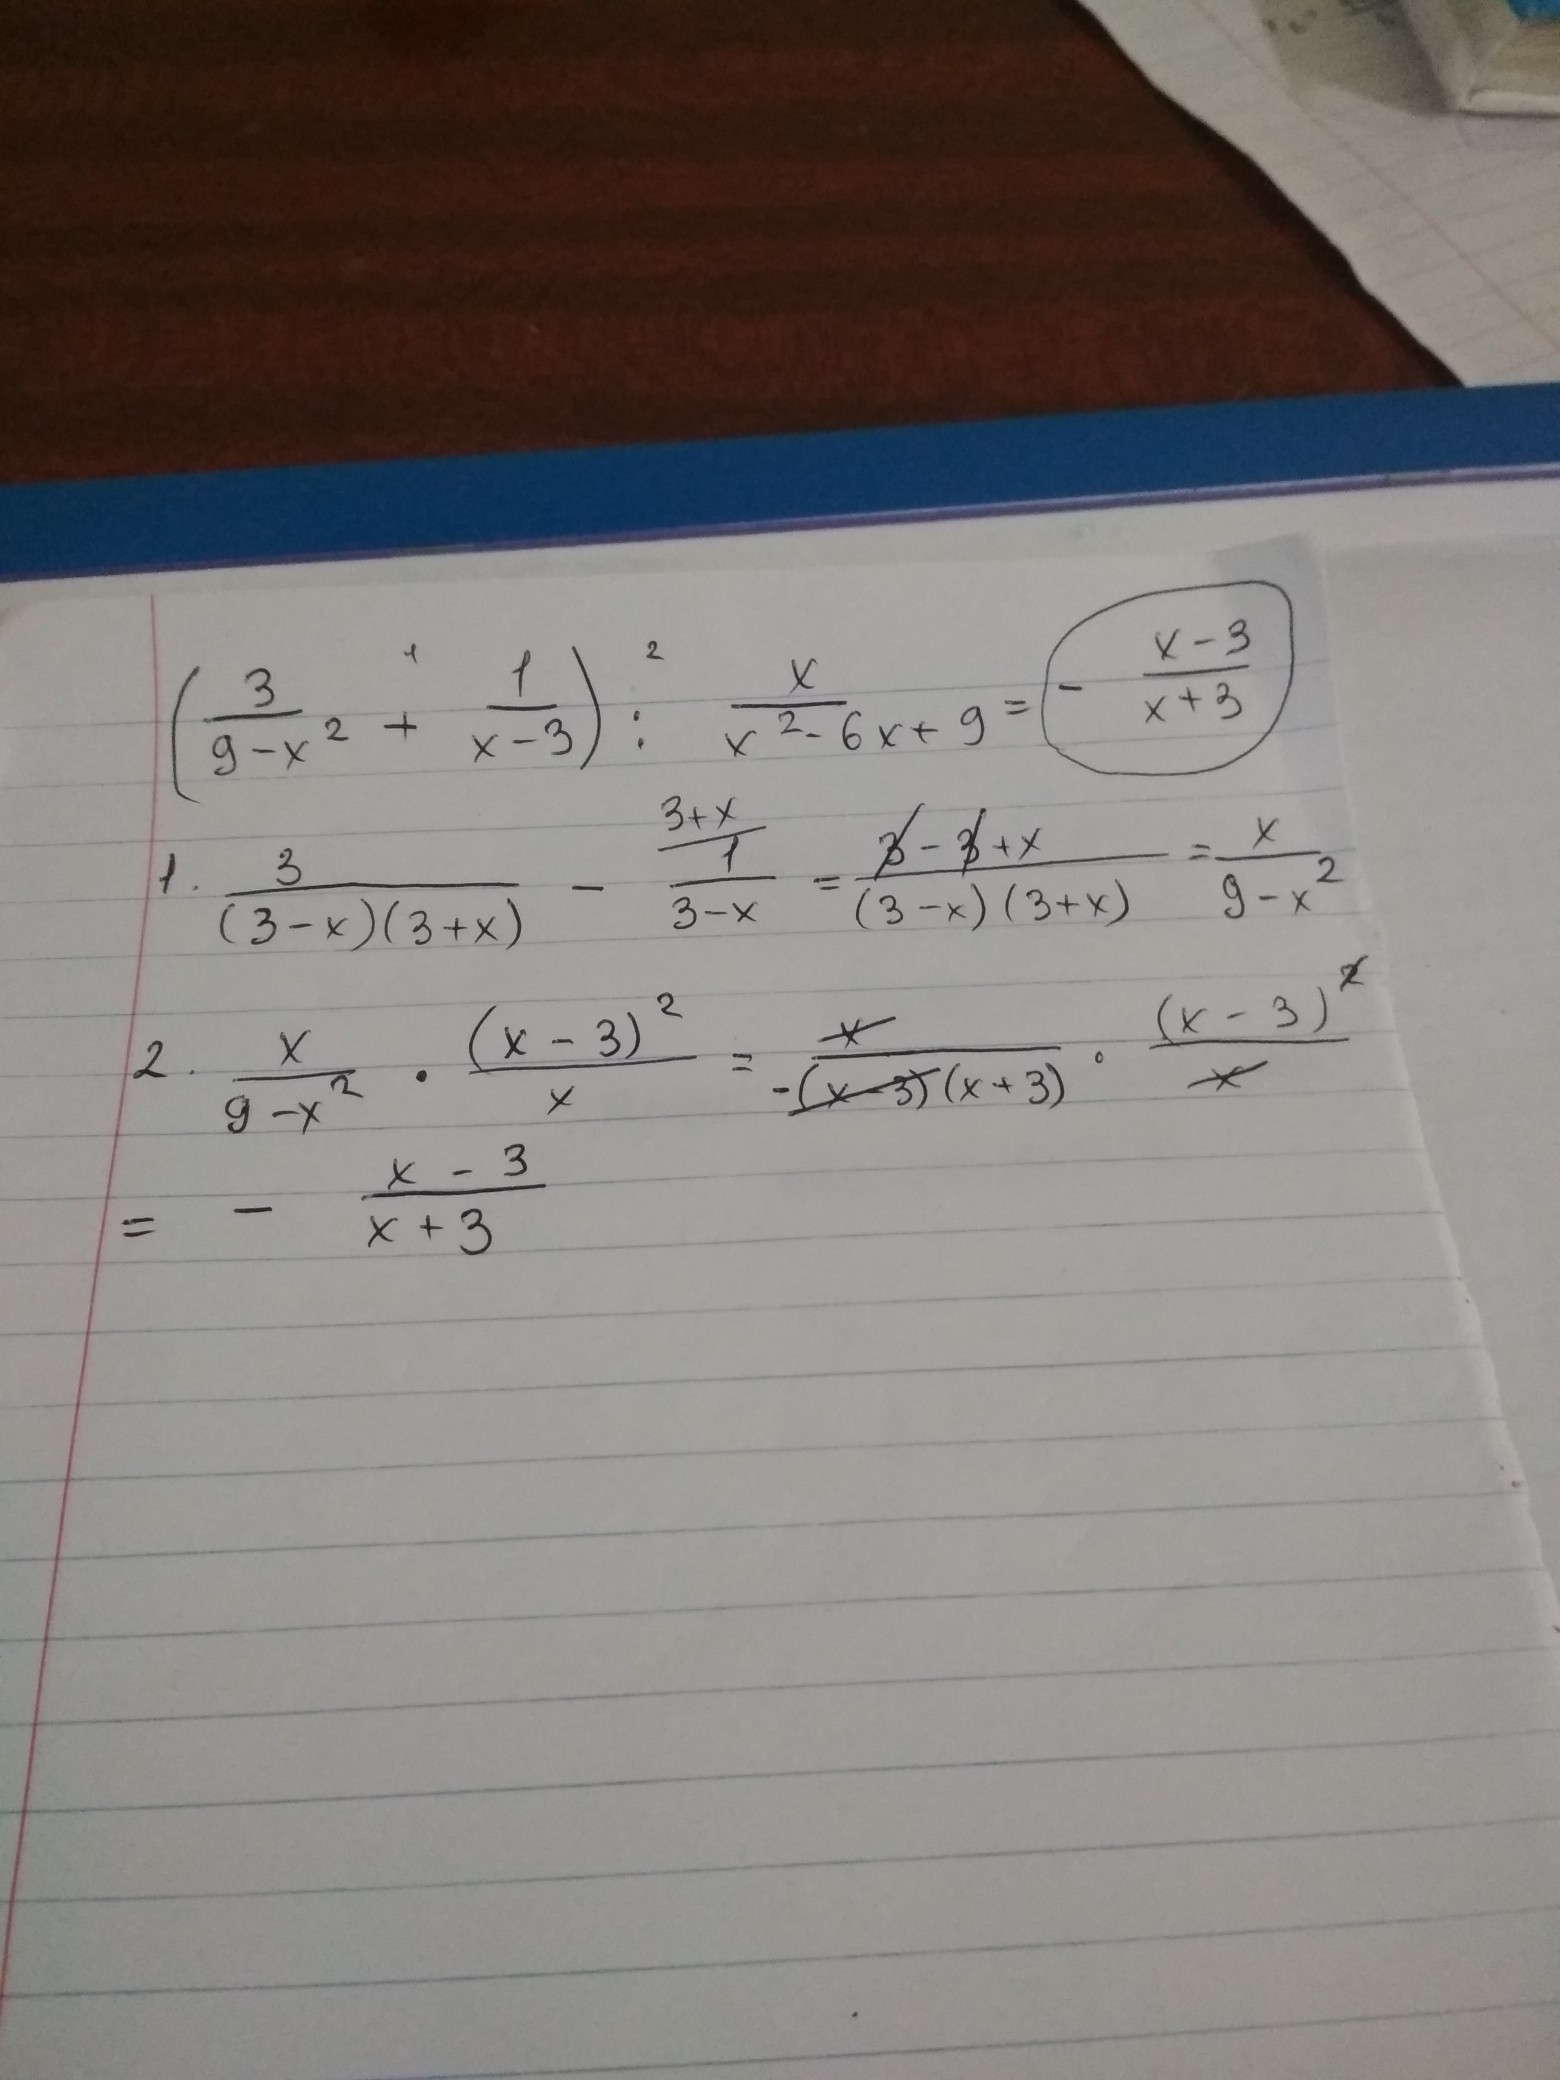 (3/(9-x²) +¹ 1/(x-3)) :² x/(x²-6x+9) = - (x-3)/(x+3)
1. 3/((3-x)(3+x)) - (3+x/ 1)/(3-x) = (3-3+x)/((3-x)(3+x)) = x/(9-x²)
2. x/(9-x²) · (x-3)²/x = x/(-(x-3)(x+3)) · (x-3)²/x
= - (x-3)/(x+3)